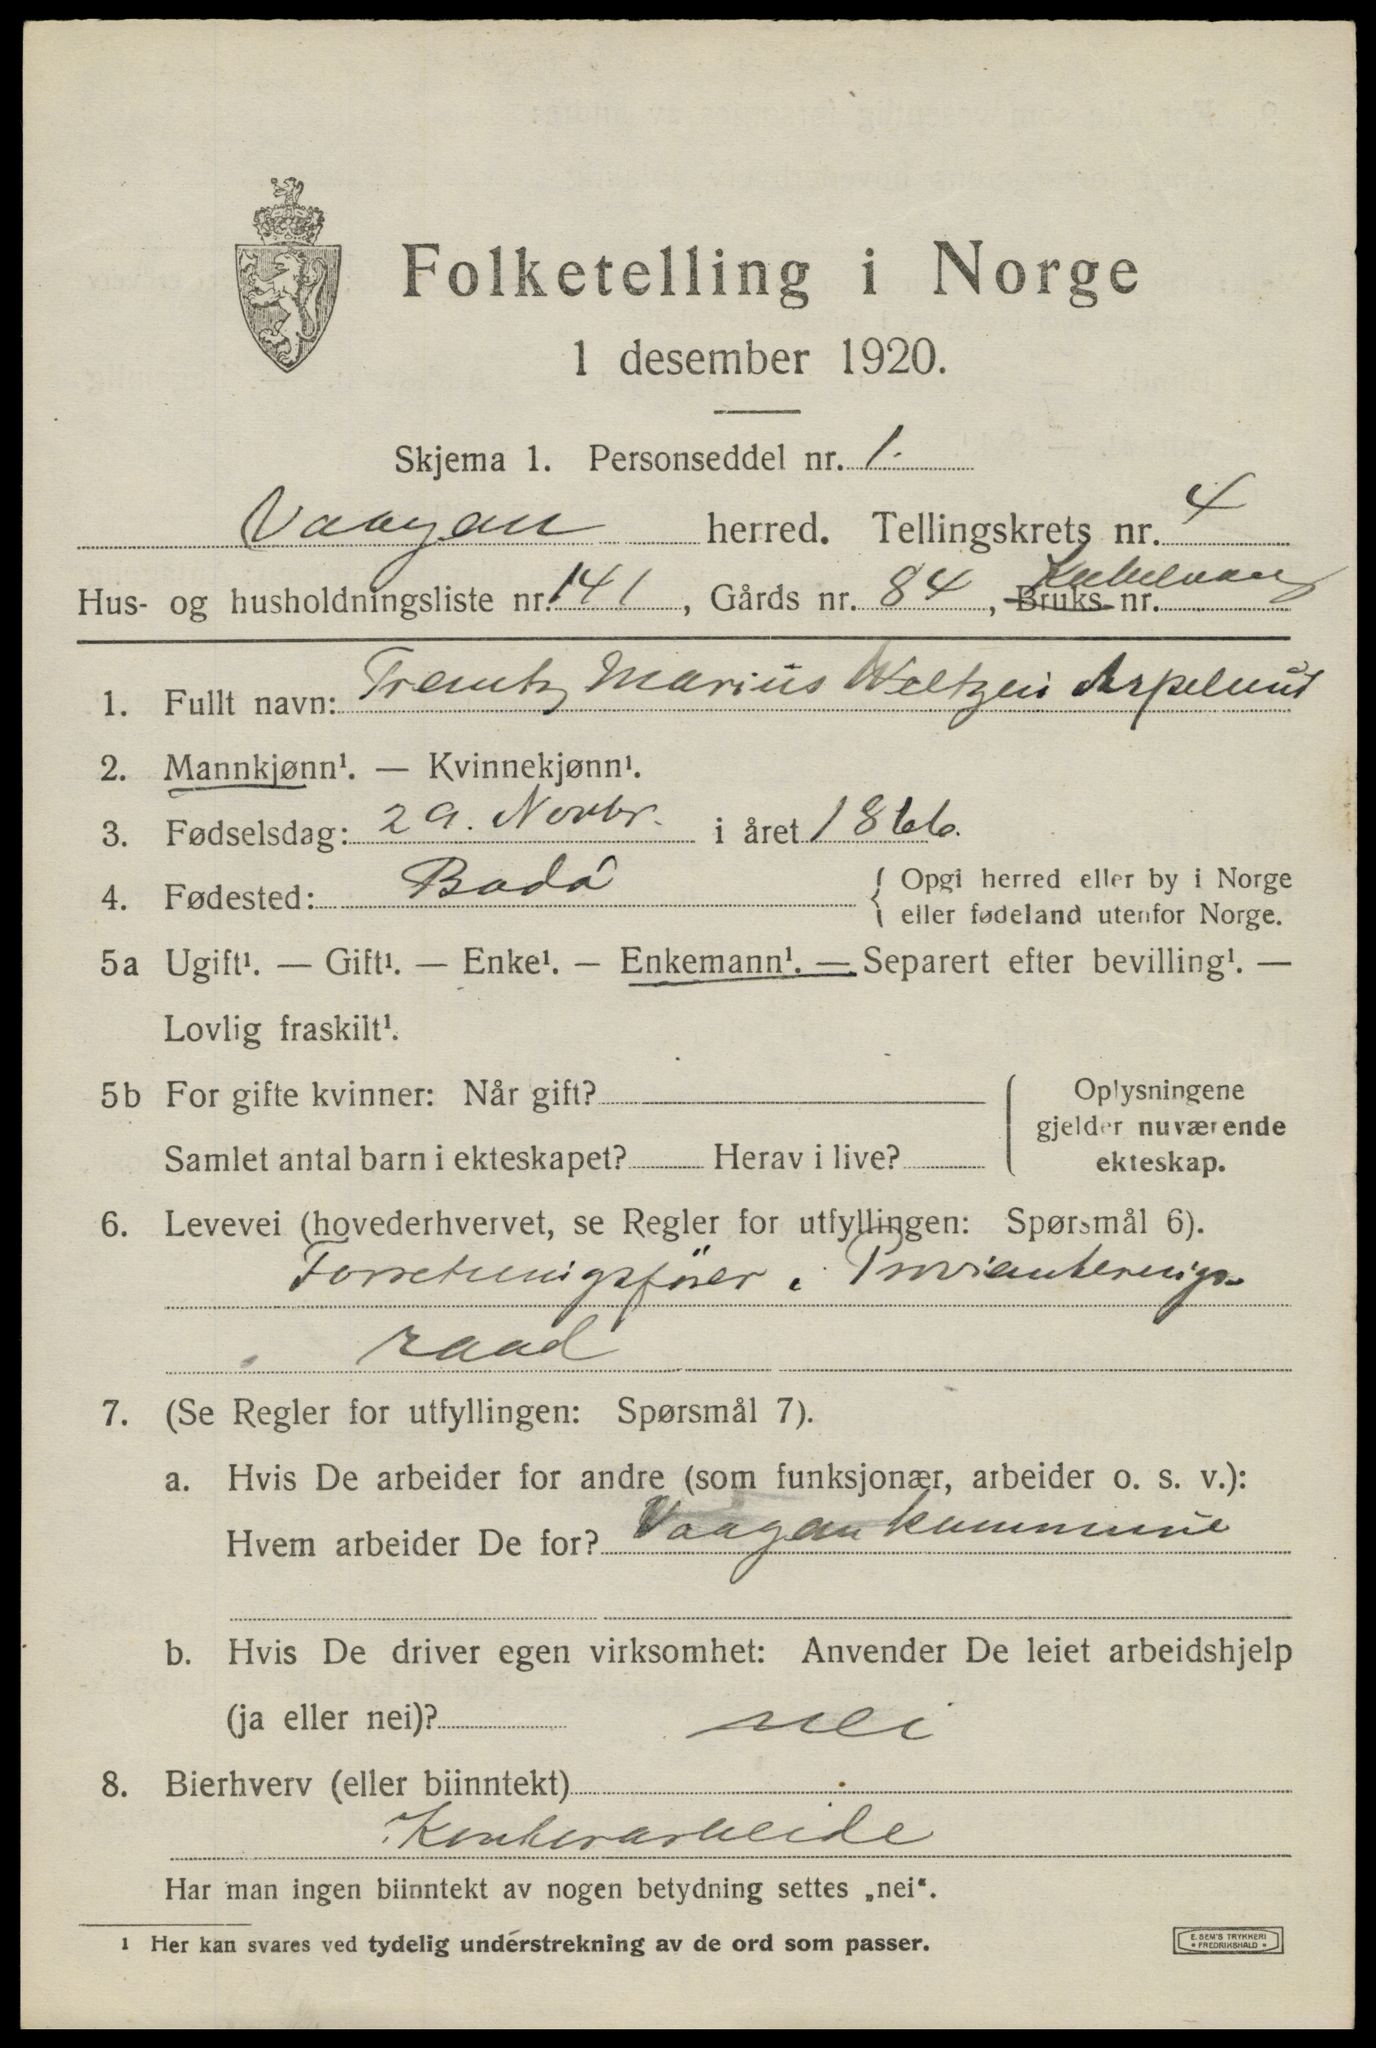 Folketelling i Norge
1 desember 1920.
Skjema 1. Personseddel nr. 1.
Vaagan herred. Tellingskrets nr. 4
Hus- og husholdningsliste nr. 141, Gårds nr. 84, Bruks nr. Kabelvaag
1. Fullt navn: Marius Weltzen
2. Mannkjønn¹. — Kvinnekjønn¹.
3. Fødselsdag: 29. Novbr. i året 1866.
4. Fødested: Bodö { Opgi herred eller by i Norge
eller fødeland utenfor Norge.
5a Ugift¹. — Gift¹. — Enke¹. — Enkemann¹. — Separert efter bevilling¹. —
Lovlig fraskilt¹.
5b For gifte kvinner: Når gift?
Samlet antal barn i ekteskapet? Herav i live?
Oplysningene
gjelder nuværende
ekteskap.
6. Levevei (hovederhvervet, se Regler for utfyllingen: Spørsmål 6).
Forretningsfører i Provianterings-
raad
7. (Se Regler for utfyllingen: Spørsmål 7).
a. Hvis De arbeider for andre (som funksjonær, arbeider o. s. v.):
Hvem arbeider De for? Vaagan kommune
b. Hvis De driver egen virksomhet: Anvender De leiet arbeidshjelp
(ja eller nei)? nei
8. Bierhverv (eller biinntekt)
Kontorarbeide
Har man ingen biinntekt av nogen betydning settes „nei“.
¹ Her kan svares ved tydelig understrekning av de ord som passer.
E. SEM'S TRYKKERI
• FREDRIKSHALD •